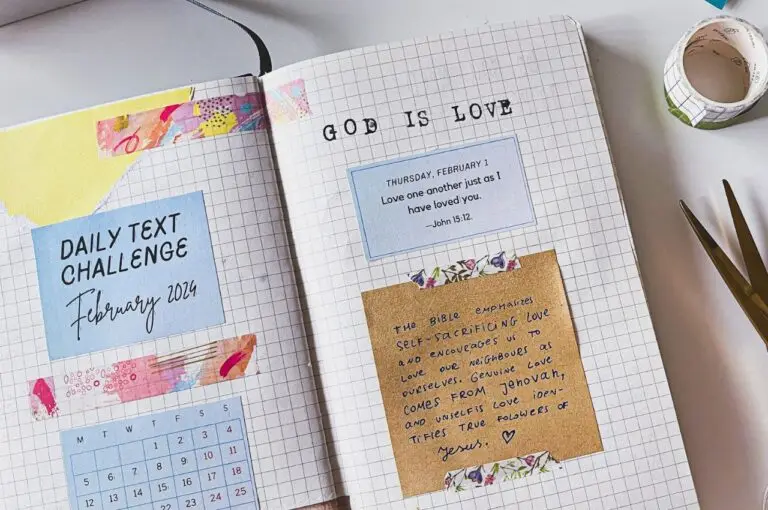 DAILY TEXT
CHALLENGE
February 2024
M T W T F S S
1 2 3 4
5 6 7 8 9 10 11
12 13 14 15 16 17 18
23 24 25
GOD IS LOVE
THURSDAY, FEBRUARY 1
Love one another just as I
have loved you.
—John 15:12.
THE BIBLE EMPHASIZES
SELF-SACRIFICING LOVE
AND ENCOURAGES US TO
LOVE OUR NEIGHBOURS AS
OURSELVES. GENUINE LOVE
COMES FROM JEHOVAH,
AND UNSELFIS LOVE IDEN-
TIFIES TRUE FOLOWERS OF
JESUS. ♡